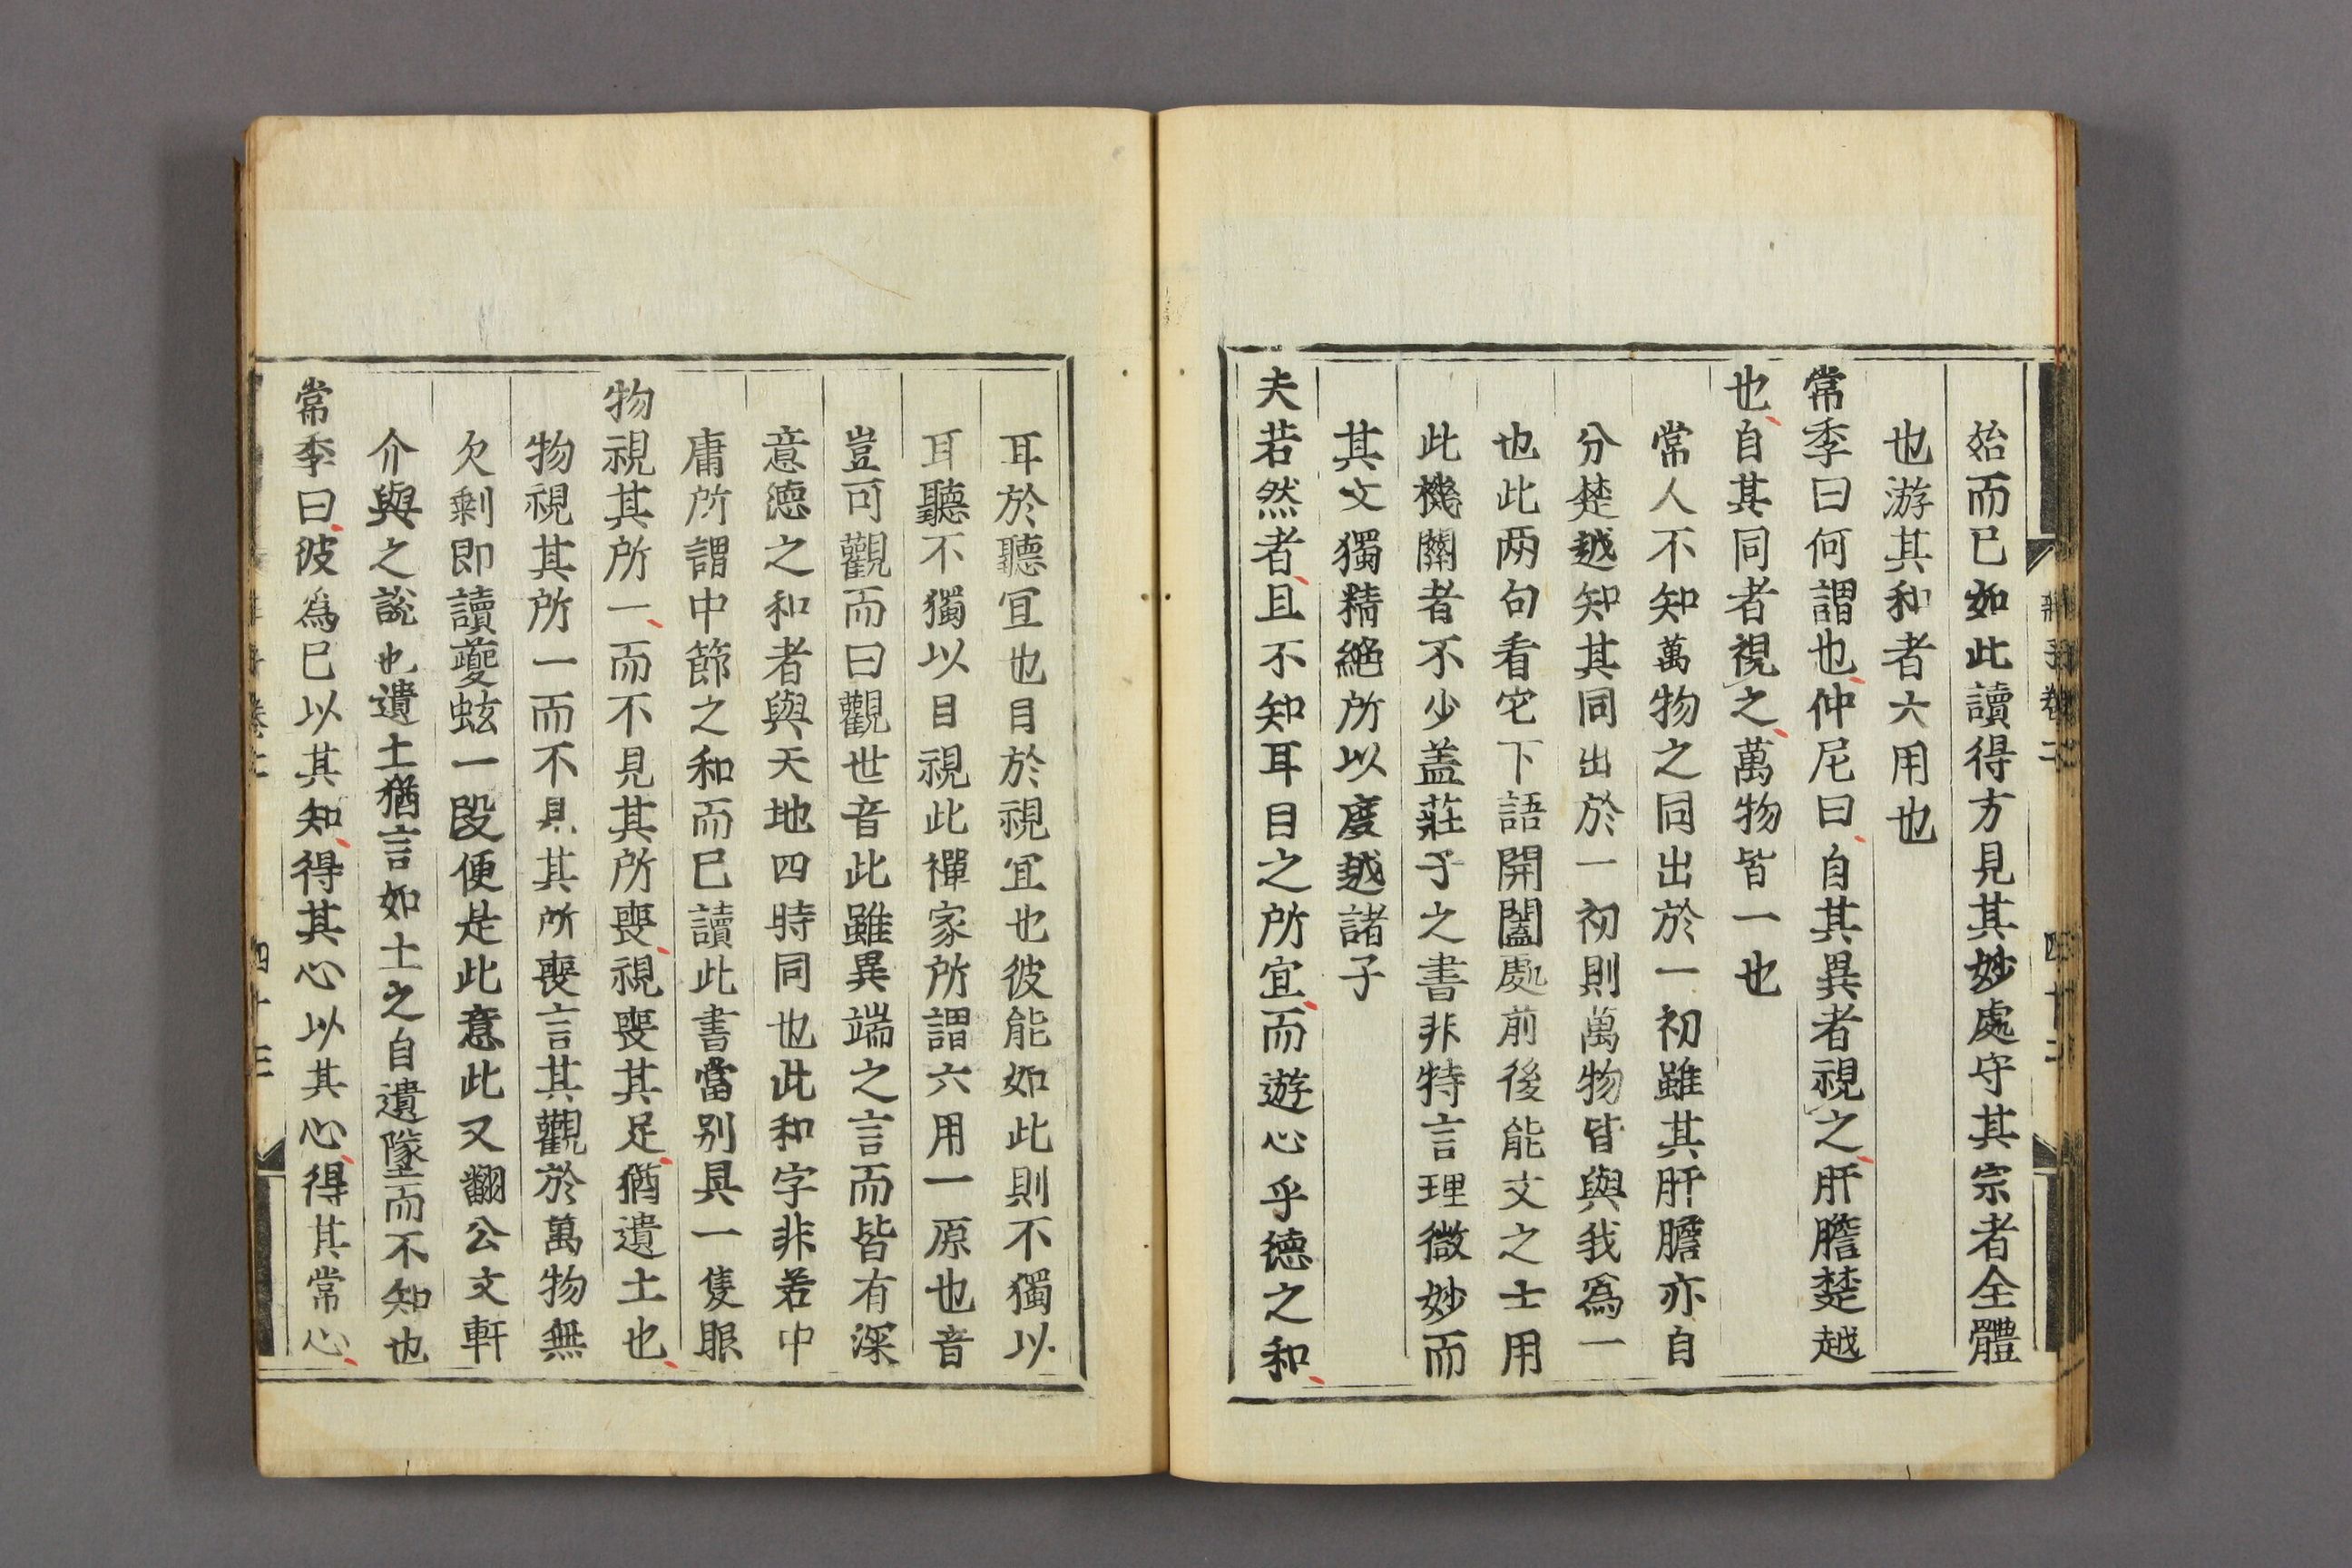 始而已如此讀得方見其妙處守其宗者全體
也游其和者六用也
常季曰何謂也仲尼曰自其異者視之肝膽楚越
也自其同者視之萬物皆一也
常人不知萬物之同出於一初雖其肝膽亦自
分楚越知其同出於一初則萬物皆與我爲一
也此两句看它下語開闔處前後能文之士用
此機關者不少盖莊子之書非特言理微妙而
其文獨精絕所以度越諸子
夫若然者且不知耳目之所宜而遊心乎德之和
耳於聽宜也目於視宜也彼能如此則不獨以
耳聽不獨以目視此禪家所謂六用一原也音
豈可觀而曰觀世音此雖異端之言而皆有深
意德之和者與天地四時同也此和字非若中
庸所謂中節之和而已讀此書當别具一隻眼
物視其所一而不見其所喪視喪其足猶遺土也
物視其所一而不見其所喪言其觀於萬物無
欠剩即讀夔蚿一段便是此意此又翻公文軒
介與之說也遺土猶言如土之自遺墜而不知也
常季曰彼爲已以其知得其心以其心得其常心